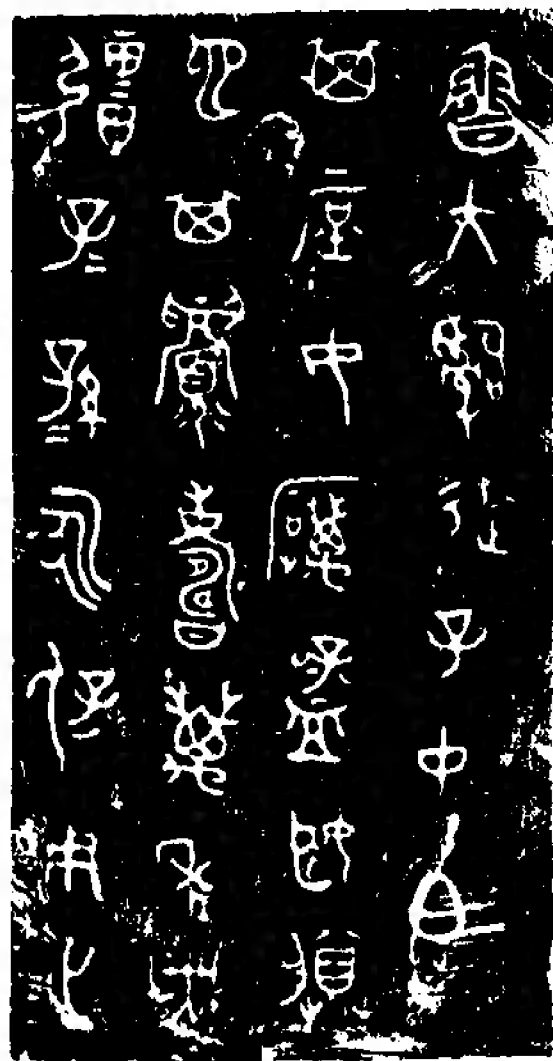 魯大司徒子中白
其庶女厲孟姬媵
也其眉壽萬年無
疆子=孫=永保用之